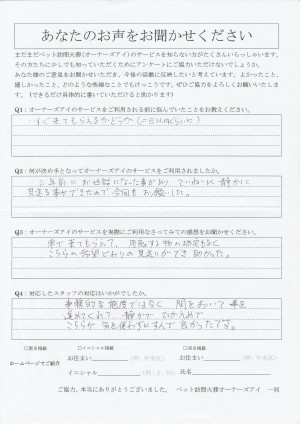 あなたのお声をお聞かせください
まだまだペット訪問火葬(オーナーズアイ)のサービスを知らない方がたくさんいらっしゃいます。
その方たちに少しでも知っていただくためにアンケートにご協力いただけないでしょうか。
あなた様のご意見をお聞かせいただき、今後の活動に反映したいと考えています。よかったこと、
嬉しかったこと、どのような些細なことでもけっこうです。ぜひご協力をよろしくお願いいたします。
(できるだけ具体的に書いていただけると助かります)
Q1:オーナーズアイのサービスをご利用される前に悩んでいたことをお教えください。
すぐ来てもらえるかどうか
Q2:何が決め手となってオーナーズアイのサービスをご利用されましたか。
2年前にお世話になった事があり ていねいに 静かに
見送る事ができたので今回もお願いした。
Q3:オーナーズアイのサービスを実際にご利用になってみての感想をお聞かせください。
家で来てもらえて、用意する物の指定もなく
こちらの希望どおりの見送りができ助かった。
Q4:対応したスタッフの対応はいかがでしたか。
事務的な態度ではなく 間をおいて
進めてくれて、静かで ひかえめで
こちらが気を使わずにすんで良かったです。
□匿名掲載 □イニシャル掲載 □氏名掲載
ホームページでご紹介
お住まい (例:中央区) お住まい (例:中央区)
イニシャル 氏名
ご協力、本当にありがとうございました。 ペット訪問火葬オーナーズアイ 一同